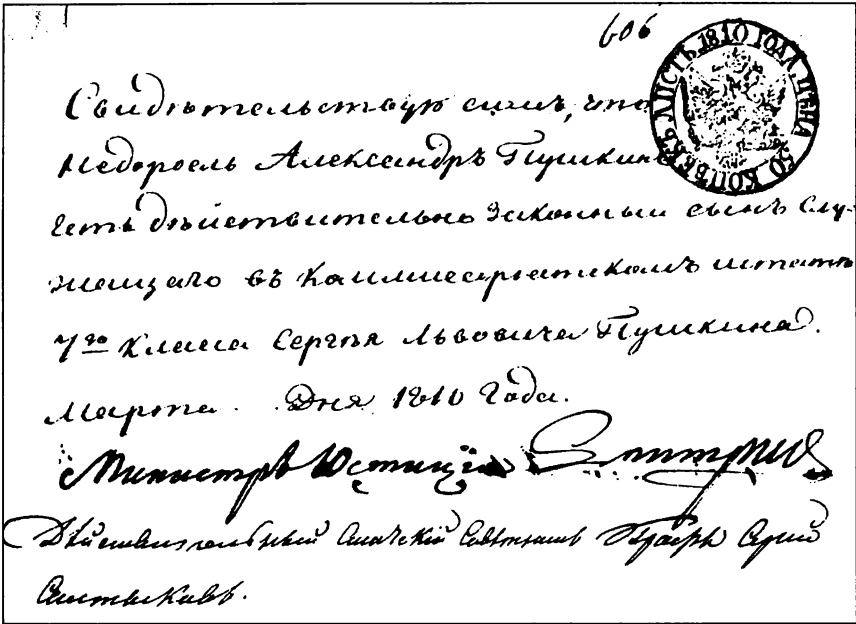 606
ЛИСТЪ 1810 ГОДА. ЦѢНА 50 КОПѢЕКЪ
Свидѣтельствую симъ, что
Недоросль Александръ Пушкинъ
Есть дѣйствительно законный сынъ Слу-
жащаго въ Коммисаріатскомъ штатѣ
7го Класса Сергѣя Львовича Пушкина.
Марта. Дня 1810 Года.
Министръ Юстиціи Дмитріевъ
Дѣйствительный Статскій Совѣтникъ Графъ
Салтыковъ.